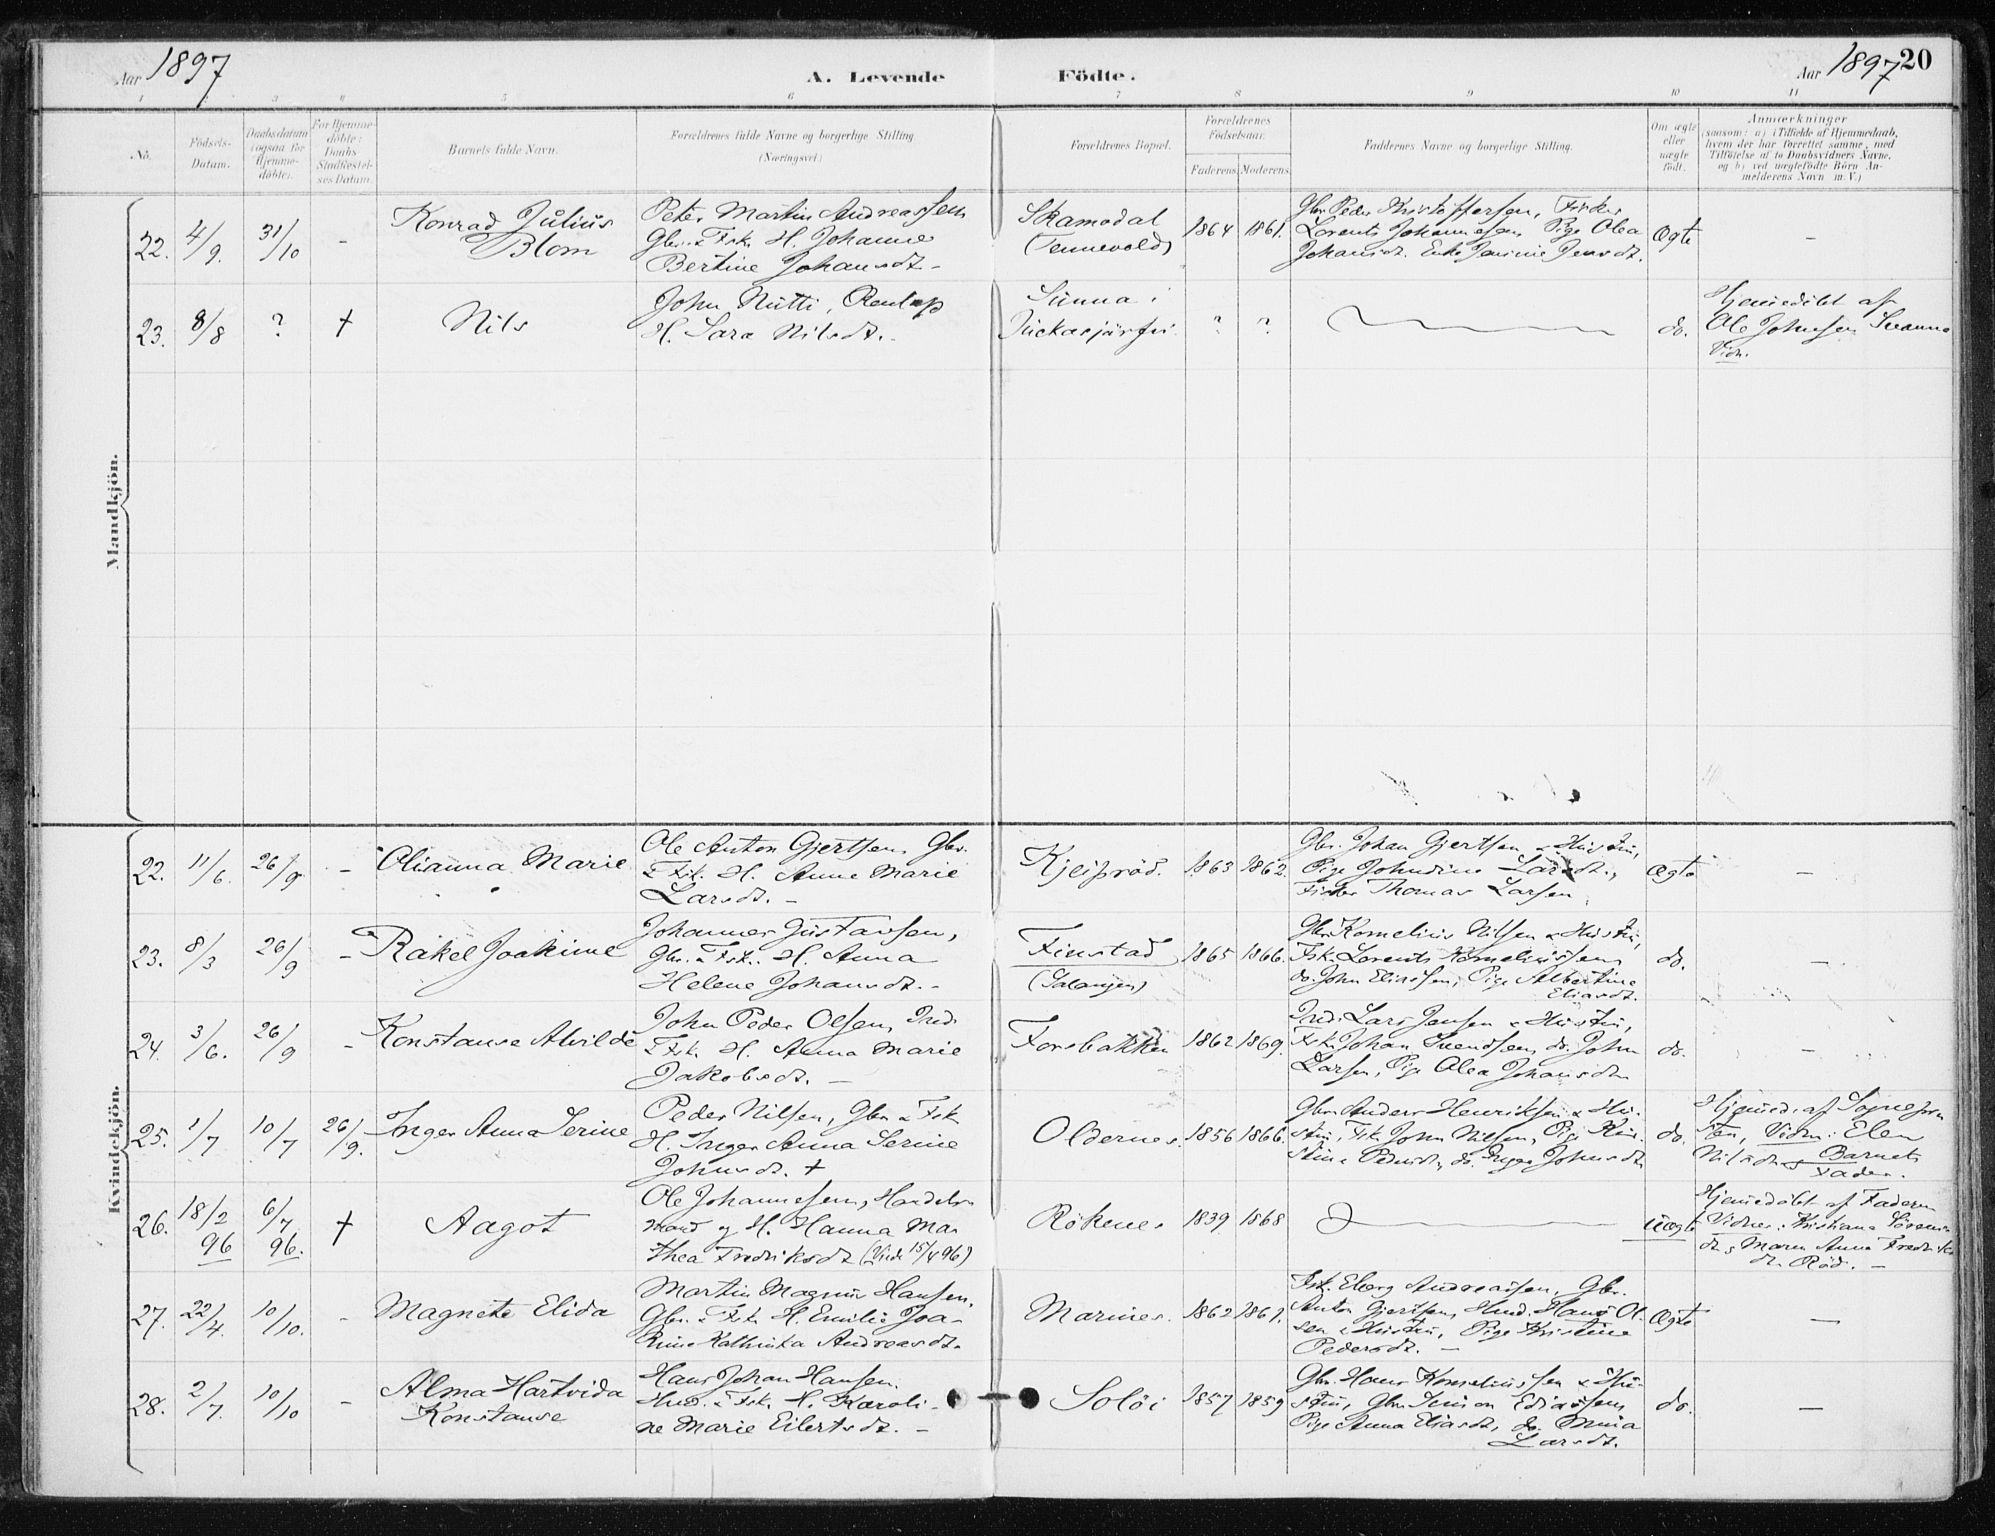 Aar 1897 A. Levende Födte. Aar 1897 20
1 2 3 4 5 6 7 8 9 10 11
No.
Födsels-
Datum.
Daabsdatum
(ogsaa for
Hjemme-
döbte).
For Hjemme-
döbte:
Daabs
Stadfæstel-
ses Datum.
Barnets fulde Navn.
Forældrenes fulde Navne og borgerlige Stilling.
(Næringsvei.)
Forældrenes Bopæl.
Forældrenes
Födselsaar.
Faderens. Moderens.
Faddernes Navne og borgerlige Stilling.
Om ægte
eller
uægte
födt.
Anmærkninger
(saasom: a) i Tilfælde af Hjemmedaab,
hvem der har forrettet samme, med
Tilföielse af to Daabsvidners Navne,
og b) ved uægtefödte Börn An-
melderens Navn m. V.)
Mandkjön.
22. 4/9. 31/10 -
Konrad Julius
Blom
Peter Martin Andreassen
Gbr. & Fsk. H. Johanne
Bertine Johansdt. -
Skamodal
(Tennevold)
1864 1861.
Gbr. Peder Kristoffersen, Fisker
Lorents Johannesen, Pige Olea
Johansdt. Enke Jensdt.
Ægte -
23. 8/8 ? †
Nils
John Nutti, Renlap
H. Sara Nilsdt. -
Sunna i
Juckasjärfvi
? ?
do.
Hjemmedöbt af
Ole Johnsen
Vidn.
Kvindekjön.
22. 11/6. 26/9 -
Olianna Marie
Ole Anton Gjertsen, Gbr.
& Fsk. H. Anne Marie
Larsdt. -
Kjeipröd.
1863 1862.
Gbr. Johan Gjertsen & Hustru,
Pige Johndine Larsdt.,
Fisker Thomas Larsen.
Ægte -
23. 8/3 26/9 -
Rakel Joakime
Johannes Gustavsen,
Gbr. & Fsk. H. Anna
Helene Johansdt. -
Finstad
(Salangen)
1865 1866.
Gbr. Kornelius Nilsen & Hustru,
Fsk. Lorents Korneliussen,
do. John Eliassen, Pige Albertine
Eliasdt.
do. -
24. 3/6. 26/9 -
Konstanse Alvilde
John Peder Olsen, Inds.
& Fsk. H. Anna Marie
Jakobsdt. -
Forsbakken
1862 1869.
Inds. Lars Jensen & Hustru,
Fsk. Johan Svendsen, do. John
Larsen, Pige Olea Johansdt.
do. -
25. 1/7 10/7 26/9.
Inger Anna Serine
Peder Nilsen, Gbr. & Fsk
H. Inger Anna Serine
Johnsdt. †
Oldernes.
1856 1866.
Gbr. Anders Henriksen & Hu-
stru, Fsk. John Nilsen, Pige Kir-
stine Pedersdt., do. Inger Johnsdt.
do.
Hjemmed. af Sognepræ
sten, Vidn: Elen
Nilsdt. & Barnets
Fader.
26. 18/2 96 6/7 96. †
Aagot
Ole Johannesen, Handels-
mand og H. Hanna Mar
thea Fredriksdt (Viede 15/4 96)
Rökenes
1839 1868
Uægte
Hjemmedöbt af Faderen
Vidner: Kristiane
dt. & Maren Anna Fredriks
dt. Röd. -
27. 22/4. 10/10. -
Magnete Elida
Martin Magnus Hansen,
Gbr. & Fsk H. Emilie Joa-
kine Kathinka Andreasdt.
Marines.
1862 1861.
Fsk. Eberg Andreassen, Gbr.
Anton Gjertsen, Hmd. Hans Ol-
sen & Hustru, Pige Kristine
Pedersdt. -
Ægte -
28. 2/7. 10/10 -
Alma Hartvida
Konstanse
Hans Johan Hansen.
Hmd. & Fsk. H. Karoli-
ne Marie Eilertsdt. -
Solöi
1857 1859
Gbr. Hans Korneliussen & Hu-
stru, Gbr. Simon Ediassen,
Pige Anna Eliasdt, do. Mina
Larsdt.
do. -